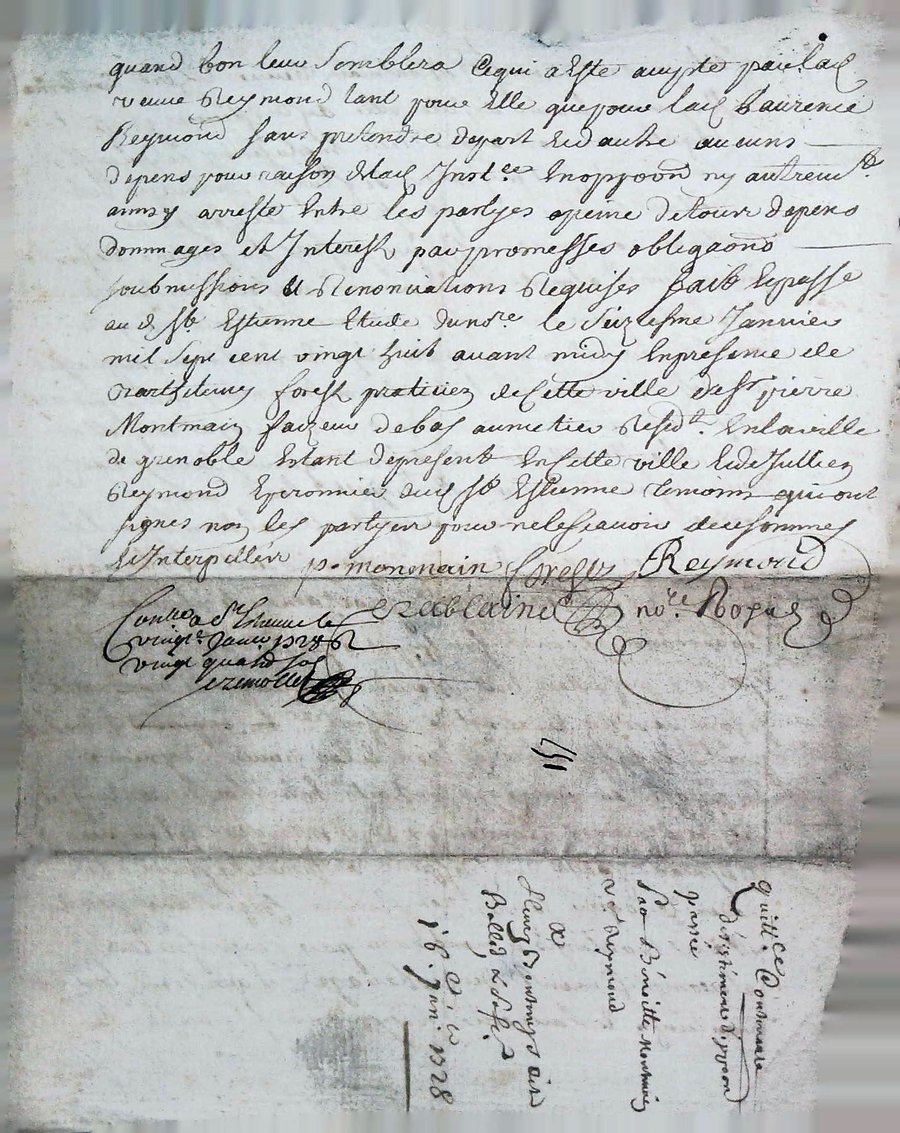 quand bon leur semblera Cequi a Esté accepté par lad
veuve Reymond tant pour Elle que pour lad Laurence
Reymond sans pretendre depart Et dautre aucuns
depens pour raison de lad Instce En opp̃on ny autremt
ainsy arresté Entre les partyes apeine de tous depens
dommages et Interest par promesses obligaõns
soubmissions Et Renonciations Requises fait Et passé
aud St Estienne Etude du nore le Seiziesme Janvier
mil sept cent vingt huit avant midy En presence de
forest praticien de Cette ville de Sr pierre
Montmain faizeur de bas aumetier Residt En la ville
de grenoble Estant de present En Cette ville Et de Jullien
Reymond Eperonnier dud St Estienne temoins qui ont
signes non les partyes pour ne le scavoir de ce sommes
Et Interpellées p. monmain forest JReymond
nore Royal
Conlle a St Estienne le
vingt Janvr 1728 R
vingt quatre sols
151
quittce
desistement d'opp̃on
passée
par Benoitte Montmain
ve Reymond
a
fleury
Du
16. Janr. 1728